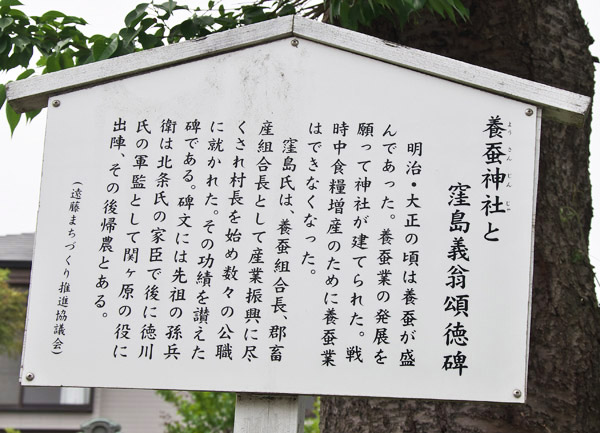 養蚕神社と
ようさんじんじゃ
窪島義翁頌徳碑
明治・大正の頃は養蚕が盛
んであった。養蚕業の発展を
願って神社が建てられた。戦
時中食糧増産のために養蚕業
はできなくなった。
窪島氏は、養蚕組合長、郡畜
産組合長として産業振興に尽
くされ村長を始め数々の公職
に就かれた。その功績を讃えた
碑である。碑文には先祖の孫兵
衛は北条氏の家臣で後に徳川
氏の軍監として関ヶ原の役に
出陣、その後帰農とある。
(遠藤まちづくり推進協議会)